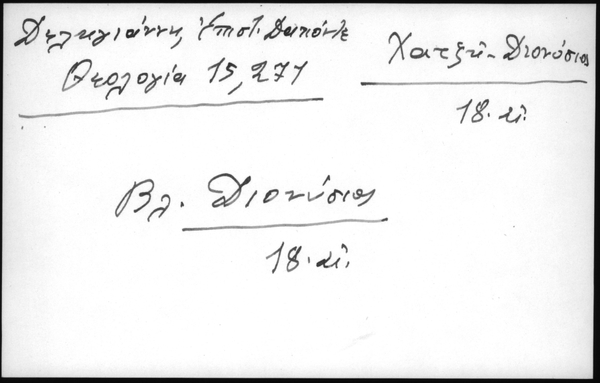 Δεληγιάννη, Ἐπιστ. Δαπόντε
Θεολογία 15, 271
Χατζῆ-Διονύσιος
18. αἰ.
Βλ. Διονύσιος
18. αἰ.